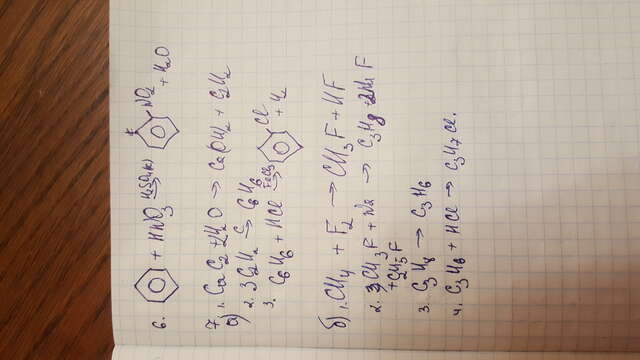 6. + HNO3 H2SO4(к) → NO2 + H2O
7.
а) 1. CaC2 + 2H2O → Ca(OH)2 + C2H2
2. 3C2H2 C → C6H6
3. C6H6 + HCl FeCl3 → Cl + H2
б) 1. CH4 + F2 → CH3F + HF
2. 3CH3F + Na → C3H8 + 2Na F
+C2H5F
3. C3H8 → C3H6
4. C3H6 + HCl → C3H7Cl.